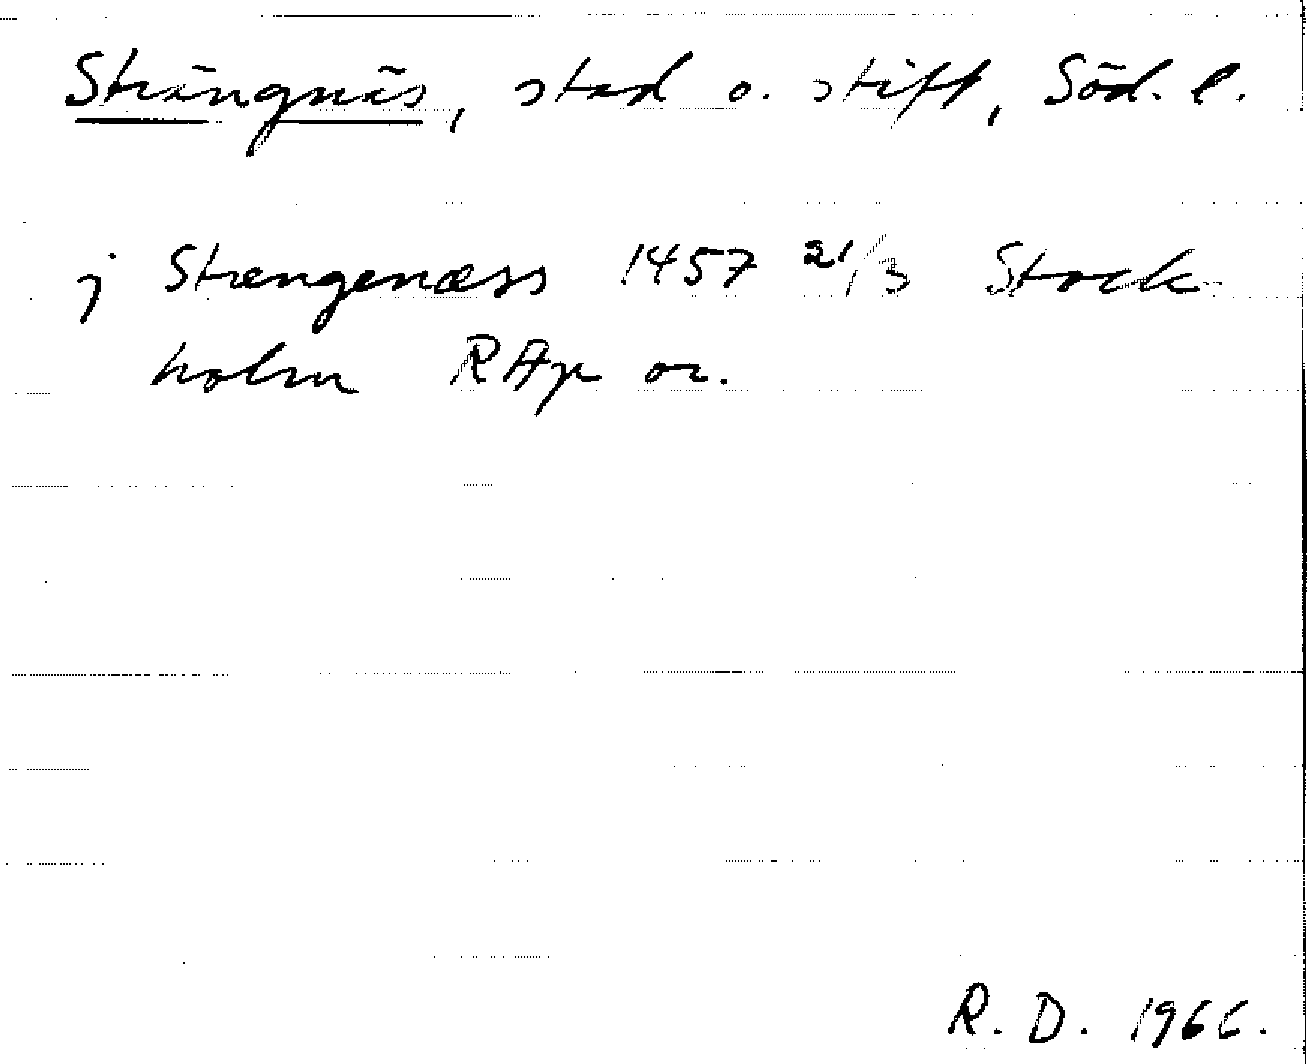 Strängnäs, stad o. stift, Söd. l.
j Strengenæss 1457 21/3 Stock
holm RAp or.
R. D. 1966.